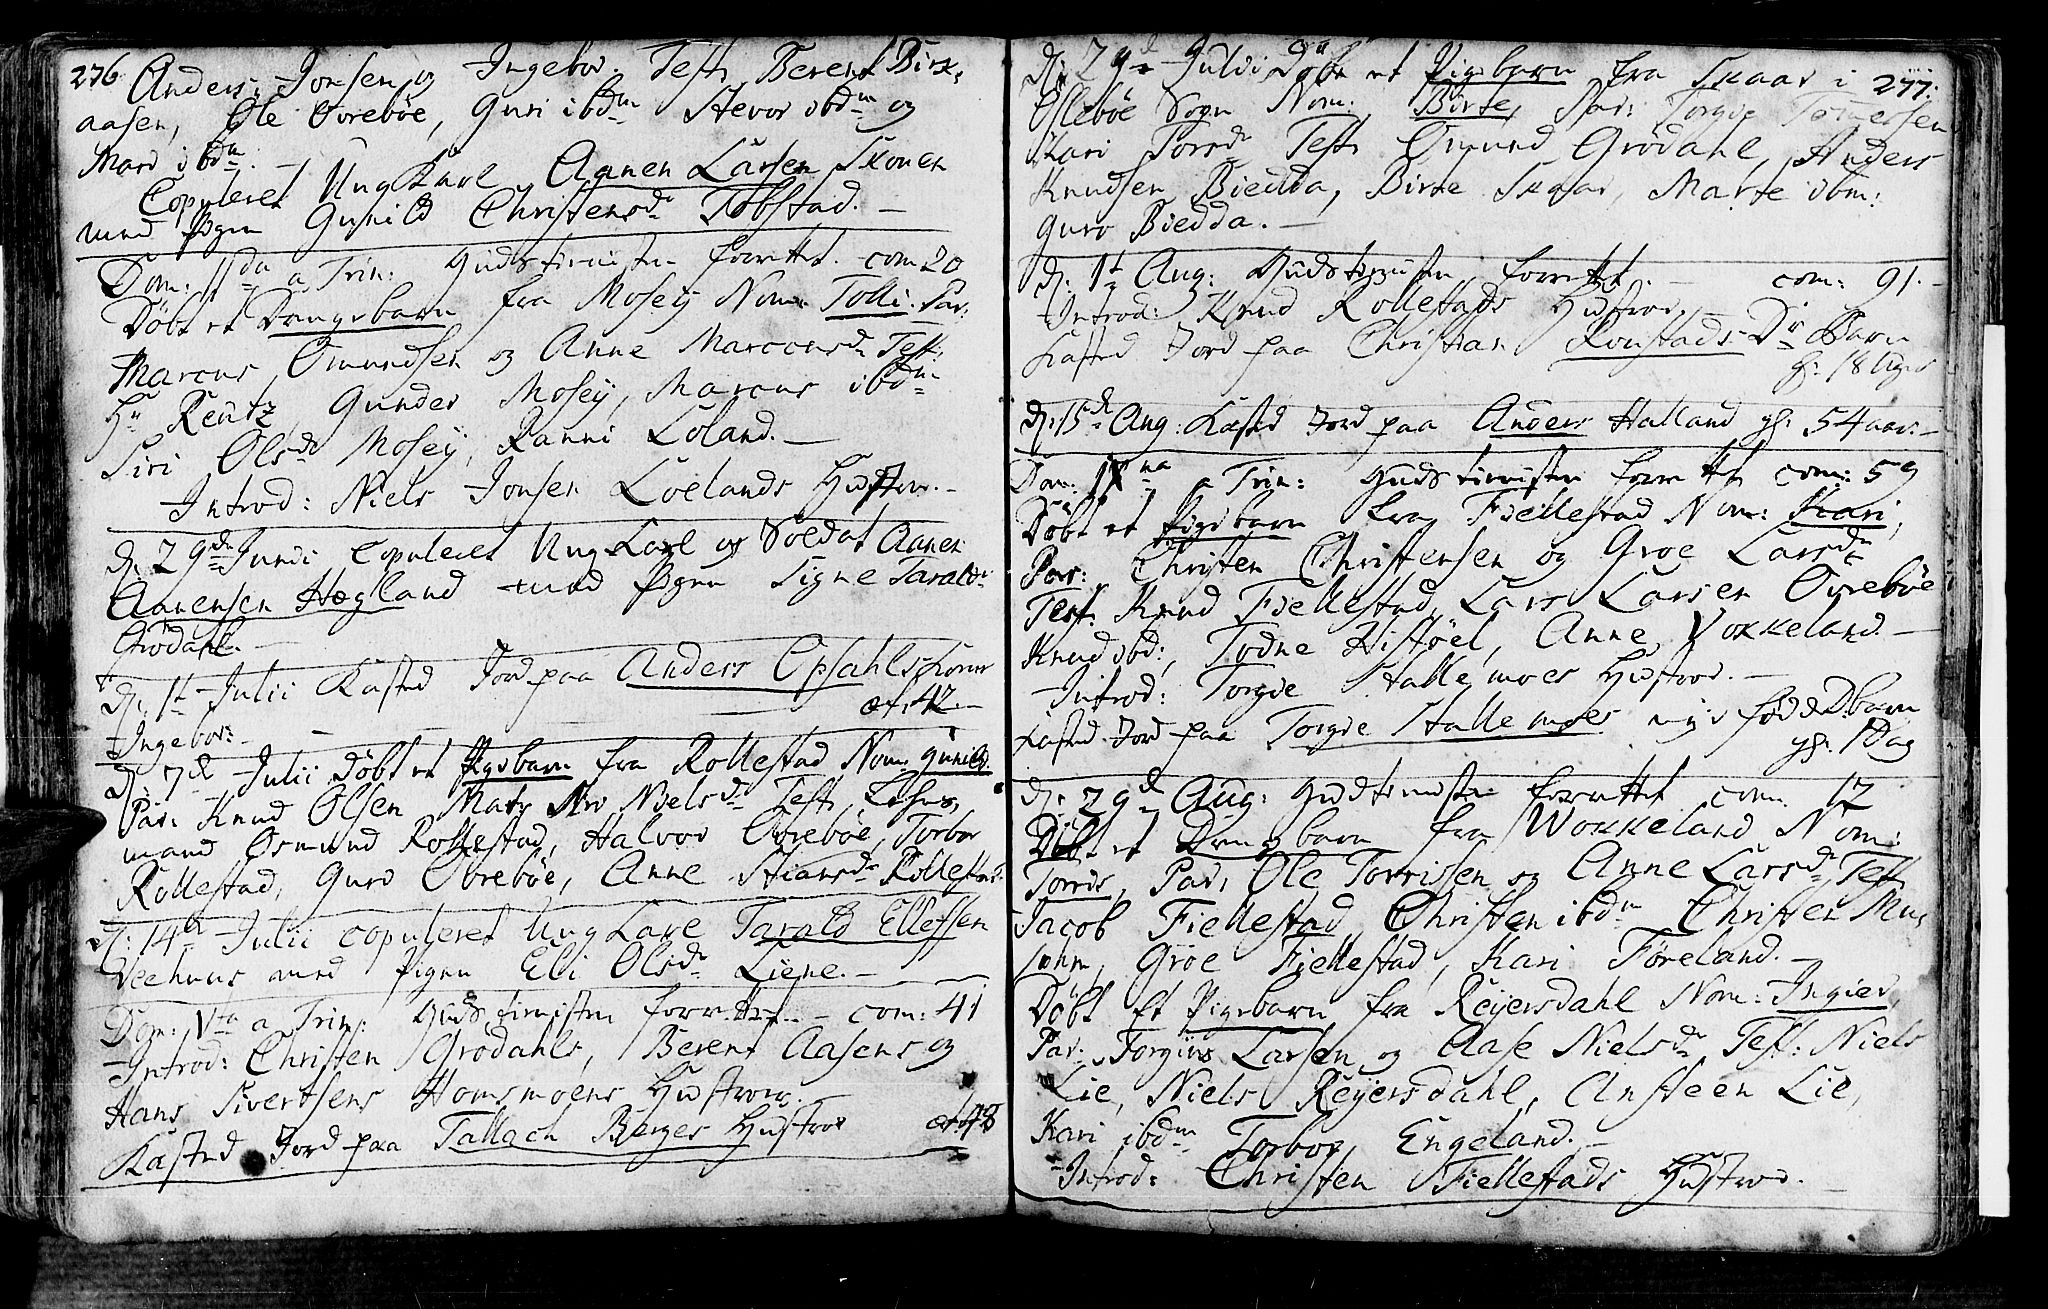 276.
Anders Jonsen og Ingebor. Test: Berent Birk-
aasen, Ole Øvrebøe, Guri ibdm Stevor ibdm og
Mari ibdm. —
Copuleret Ung Karl Aanen Larsen Skonen
med Pigen Gunild Christensdr Tobstad. —
Dom: IIda a Trin: Gudstienisten forrettet. com 20
Døbt et Drængebarn fra Mosey Nom: Tolli. Par:
Marcus Omundsen og Anne Marcusdr Test:
Hr Reutz, Gunder Mosey, Marcus ibdm
Siri Olsdr Mosey, Ranni Loland. —
Introd: Niels Jonsen Loelands Hustroe. —
d. 29de Junii Copuleret Ung Karl og Soldat Aanen
Aanensen Hægland med Pigen Signe Taraldsdr
Grødahl. —
d. 1t Julii Kasted Jord paa Anders Opsahls Kone
Ingebor: — æt. 47. —
d: 7de Julii Døbt et Pigebarn fra Rollestad Nom: Gunild.
Par: Knud Olsen Nielsdr Test:
mand Osmund Rollestad, Halvor Øvrebøe, Torbor
Rollestad, Guro Øvrebøe, Anne Stiansdr Rollestad.
d: 14de Julii copuleret Ung Karl Tarald Ellefsen
Veehuus med Pigen Eli Olsdr Liene. —
Dom: Vta a Trin: Gudstienisten forrettet. — com: 41
Introd: Christen Grødahls, Berent Aasens og
Hans Sivertsens Homsmoens Hustroer.
Kasted Jord paa Tallach Berges Hustroe æt. 48
277.
d: 29de Julii Døbt et Pigebarn fra Skaar i
Øslebøe Sogn Nom: Birte, Par: Torgie
Kari Torsdr Test: Omund Grødahl, Anders
Knudsen Biedda, Birte Skaar, Marte ibm:
Guro Biedda. —
d: 1t Aug: Gudstienisten forrettet. — com: 91. —
Introd: Knud Rollestads Hustroe.
Kasted Jord paa Christian Ronstads Dr Barn
gl: 18 Uger
d: 15de Aug: Kasted Jord paa Anders Halland gl: 54 aar. —
Dom: a Trin: Gudstienisten forrettet com: 59
Døbt et Pigebarn fra Fiellestad Nom: Kari,
Par: Christen Christensen og Groe Larsdr
Test: Knud Fiellestad, Lars Larsen Øvrebøe
Knud ibd:, Todne Histøel, Anne Vokkeland. —
Introd: Torgie Hallemoes Hustroe. —
Kasted Jord paa Torgie Hallemoes nyefødde Dbarn
gl: 1 Dag
d: 29de Aug: Gudstienisten forrettet com. 12
Døbt et Drengebarn fra Wokkeland Nom:
Torris, Par: Ole Torrissen og Anne Larsdr Test:
Jacob Fiellestad, Christen ibdm Christen Mus-
Groe Fiellestad, Kari Føreland. —
Døbt Et Pigebarn fra Reiersdahl Nom: Ingier,
Par: Torgiuus Larsen og Aase Nielsdr Test: Niels
Lie, Niels Reiersdahl, Ansteen Lie,
Kari ibdm Torbor Engeland. —
Introd: Christen Fiellestads Hustroe. —